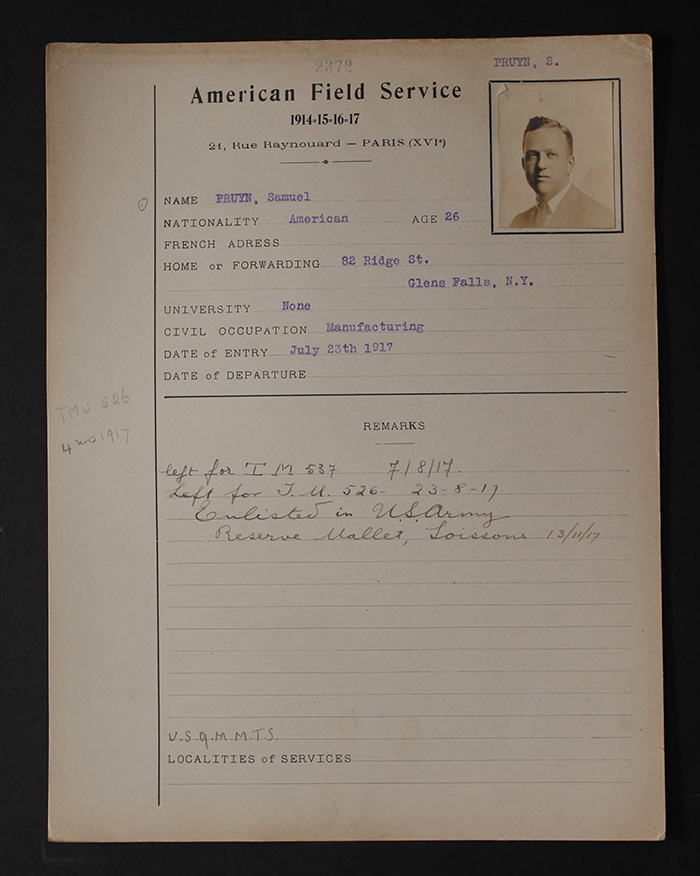 2372
PRUYN, S.
American Field Service
1914-15-16-17
21, Rue Raynouard — PARIS (XVIe)
NAME PRUYN, Samuel
NATIONALITY American AGE 26
FRENCH ADRESS
HOME or FORWARDING 82 Ridge St.
Glens Falls, N.Y.
UNIVERSITY None
CIVIL OCCUPATION Manufacturing
DATE of ENTRY July 23th 1917
DATE of DEPARTURE
TMU 526
4 mos 1917
REMARKS
left for T M 537 7/8/17.
Left for T.M. 526- 23-8-17
Enlisted in U.S. Army
Reserve Mallet, Soissons 13/11/17
U.S.Q.M.M.T.S.
LOCALITIES of SERVICES